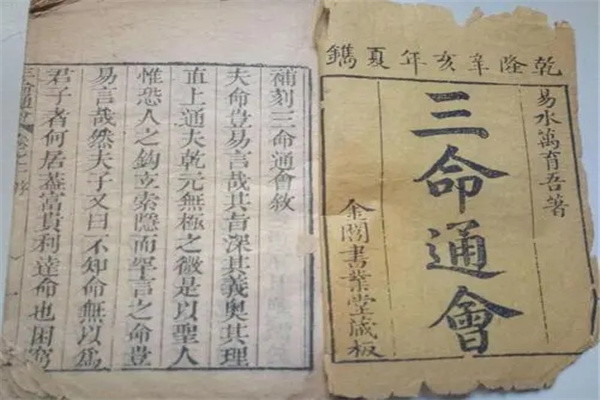 乾隆辛亥年夏鐫
易水萬育吾著
三命通會
金閶書業堂藏板
補刻三命通會敘
夫命豈易言哉其旨深其義奧其理
直上通夫乾元無極之微是以聖人
惟恐人之鈎立索隱而罕言之命豈
易言哉然夫子又曰不知命無以爲
君子者何居葢富貴利達命也困窮
三命通會